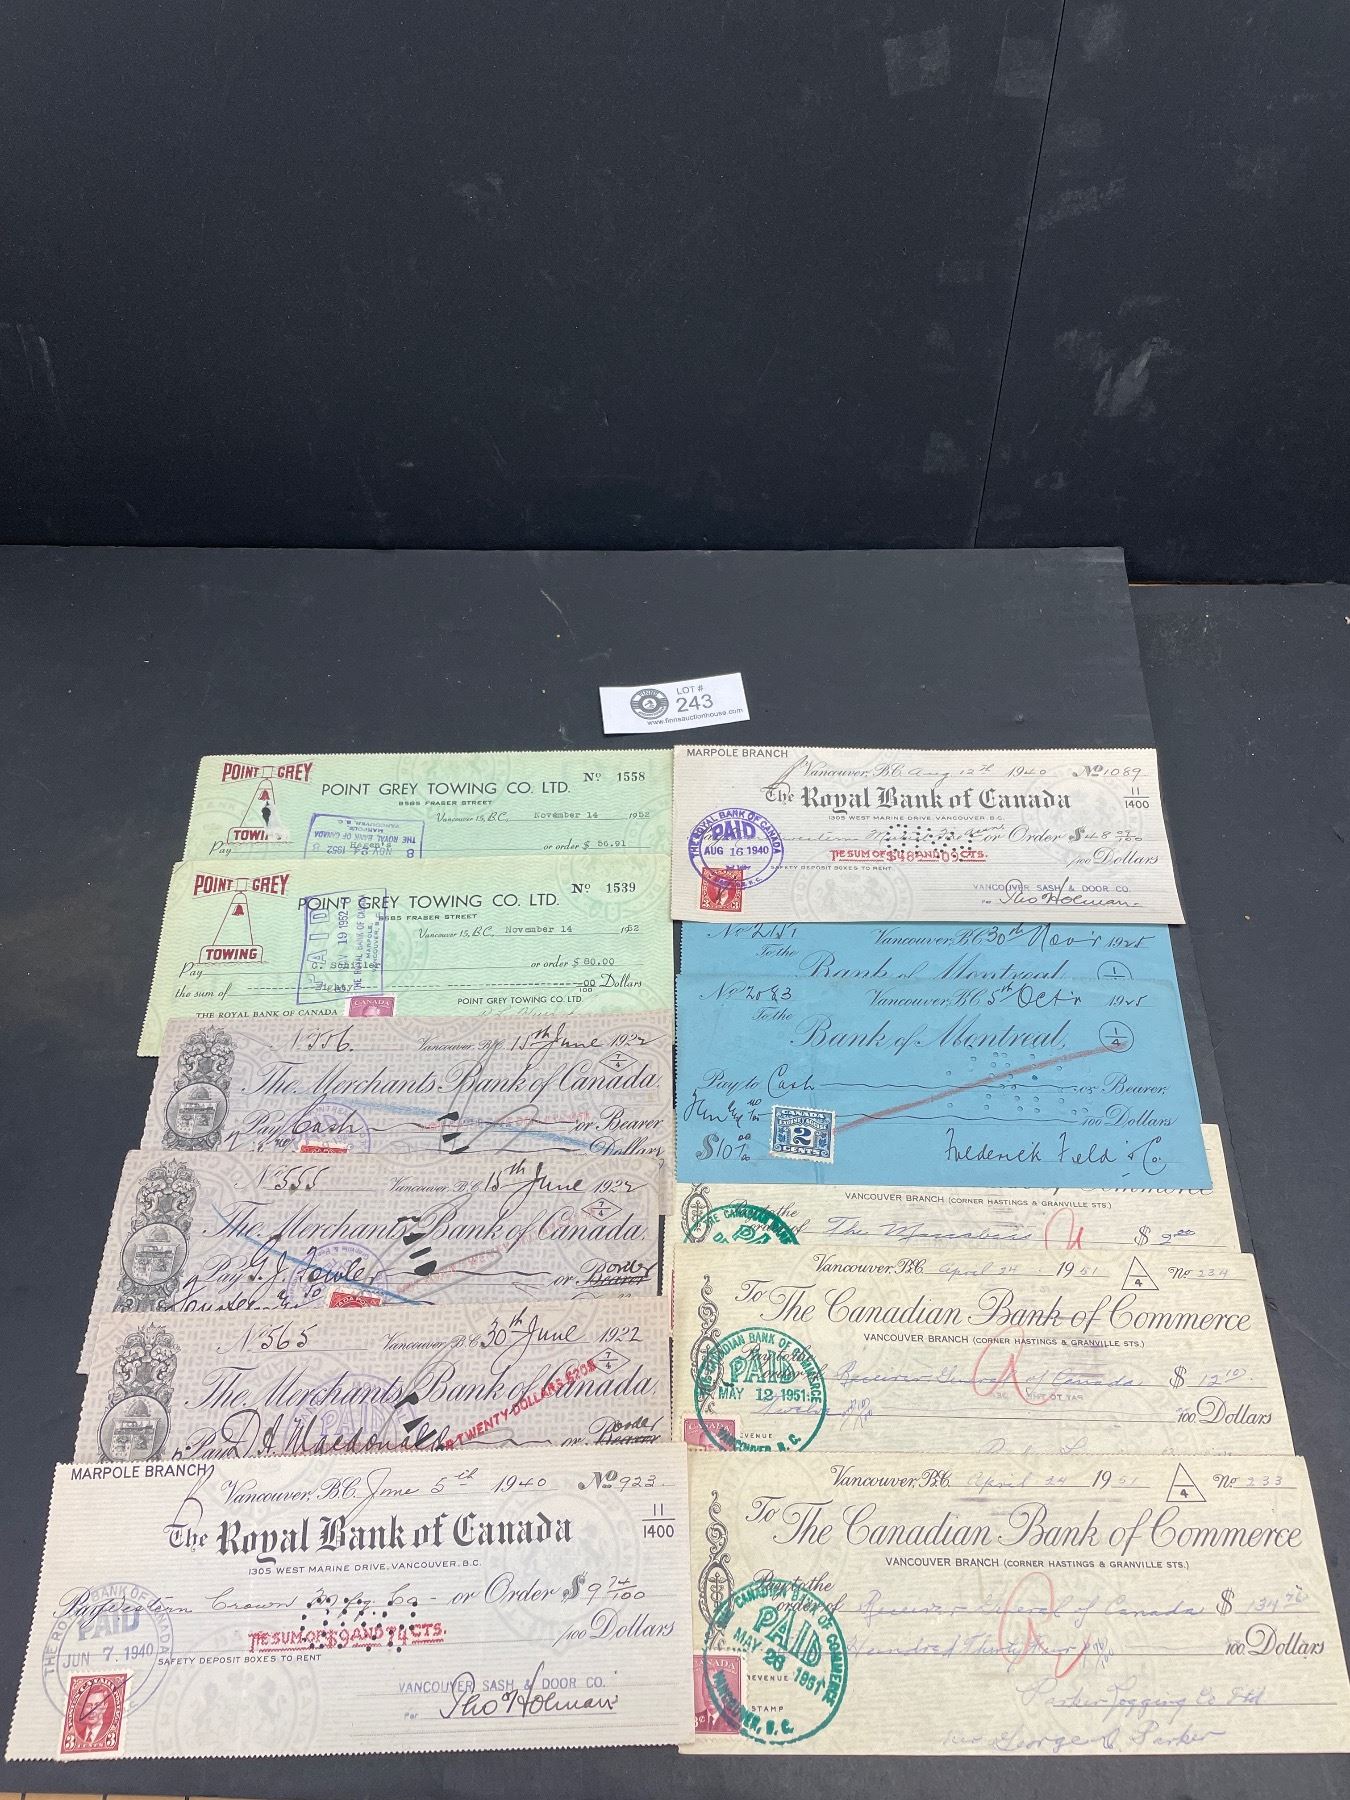 LOT #
243
www.finnsauctionhouse.com
POINT GREY
TOWING
POINT GREY TOWING CO. LTD.
Nº 1558
8585 FRASER STREET
Vancouver 15, B.C., November 14 1952
Pay
or order $ 56.91
THE ROYAL BANK OF CANADA
MARPOLE
VANCOUVER, B.C.
NOV 24 1952
POINT GREY
TOWING
POINT GREY TOWING CO. LTD.
Nº 1539
8585 FRASER STREET
Vancouver 15, B.C., November 14 1952
PAID
NOV 19 1952
THE ROYAL BANK OF CANADA
MARPOLE
VANCOUVER, B.C.
Pay
or order $ 80.00
the sum of
Eighty
00/100 Dollars
CANADA
POINT GREY TOWING CO. LTD.
THE ROYAL BANK OF CANADA
No 556.
Vancouver, B.C. 15th June 1922
7/4
The Merchants Bank of Canada,
Pay Cash or Bearer
Dollars
No 555
Vancouver, B.C. 15th June 1922
7/4
The Merchants Bank of Canada,
Pay G. J. Fowler or Bearer
order
No 565
Vancouver, B.C. 30th June 1922
7/4
The Merchants Bank of Canada,
TWENTY DOLLARS
PAID
Pay D A Macdonald or Bearer
order
MARPOLE BRANCH
Vancouver, B.C. June 5th 1940 Nº 923
11/1400
The Royal Bank of Canada
1305 WEST MARINE DRIVE, VANCOUVER, B.C.
Pay Western Crown or Order $ 9 74/100
THE SUM OF $9 AND 74 CTS.
/100 Dollars
PAID
JUN 7 1940
SAFETY DEPOSIT BOXES TO RENT
VANCOUVER SASH & DOOR CO.
Per Tho Holman
3 3
MARPOLE BRANCH
Vancouver, B.C. Aug 12th 1940 Nº 1089
11/1400
The Royal Bank of Canada
1305 WEST MARINE DRIVE, VANCOUVER, B.C.
THE ROYAL BANK OF CANADA
PAID
AUG 16 1940
or Order $ 48 09/100
THE SUM OF $48 AND 09 CTS.
/100 Dollars
SAFETY DEPOSIT BOXES TO RENT
VANCOUVER SASH & DOOR CO.
Per Tho Holman
No 2151
Vancouver, B.C. 30th Nov'r 1925
To the
Bank of Montreal
No 2083
Vancouver, B.C. 5th Oct'r 1925
To the
Bank of Montreal,
1/4
Pay to Cash or Bearer,
/100 Dollars
$10
CANADA
2
CENTS
Frederick Feld & Co.
VANCOUVER BRANCH (CORNER HASTINGS & GRANVILLE STS.)
$ 2.00
Vancouver, B.C. April 24 1951
4
Nº 234
To The Canadian Bank of Commerce
VANCOUVER BRANCH (CORNER HASTINGS & GRANVILLE STS.)
THE CANADIAN BANK OF COMMERCE
PAID
MAY 12 1951
VANCOUVER, B.C.
Pay to the
order of Receiver General of Canada $ 12 10
Twelve
/100 Dollars
REVENUE
Vancouver, B.C. April 24 1951
4
Nº 233
To The Canadian Bank of Commerce
VANCOUVER BRANCH (CORNER HASTINGS & GRANVILLE STS.)
Pay to the
order of Receiver General of Canada $ 134
Hundred Thirty Four
/100 Dollars
THE CANADIAN BANK OF COMMERCE
PAID
VANCOUVER, B.C.
REVENUE
STAMP
Parker Logging Co Ltd
George Parker